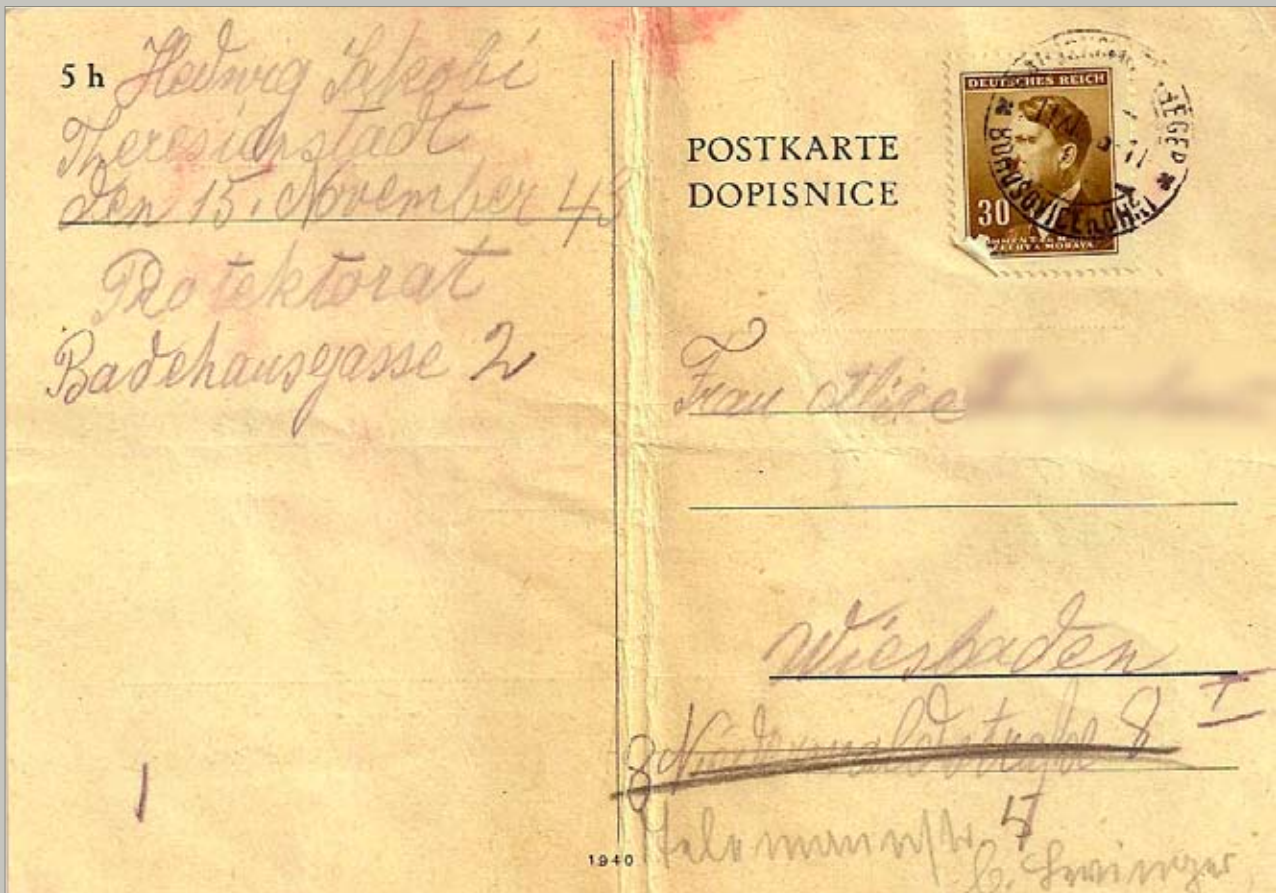 5 h Hedwig
Theresienstadt
den 15. November 43
Protektorat
Badehausgasse 2
POSTKARTE
DOPISNICE
DEUTSCHES REICH
30
BÖHMEN U. MÄHREN
ČECHY A MORAVA
BOHUŠOVICE n. OHŘÍ
Frau Alice
Wiesbaden
I
8
5
1
1940